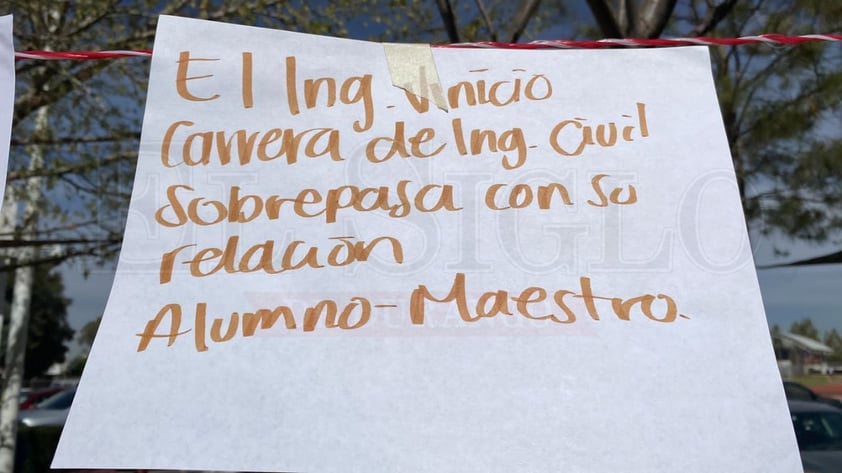 El Ing. Vinicio
Carrera de Ing. Civil
Sobrepasa con su
relación
Alumno-Maestro.
EL SIGLO